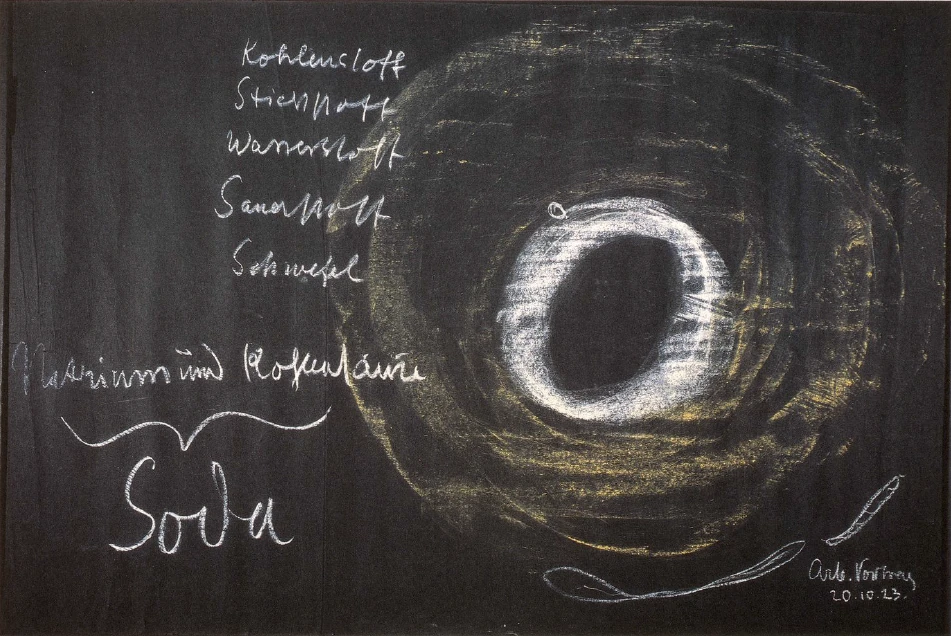 Kohlenstoff
Stickstoff
Wasserstoff
Sauerstoff
Schwefel
Natrium und Kohlensäure
Soda
Arb. Vortrag
20.10.23.